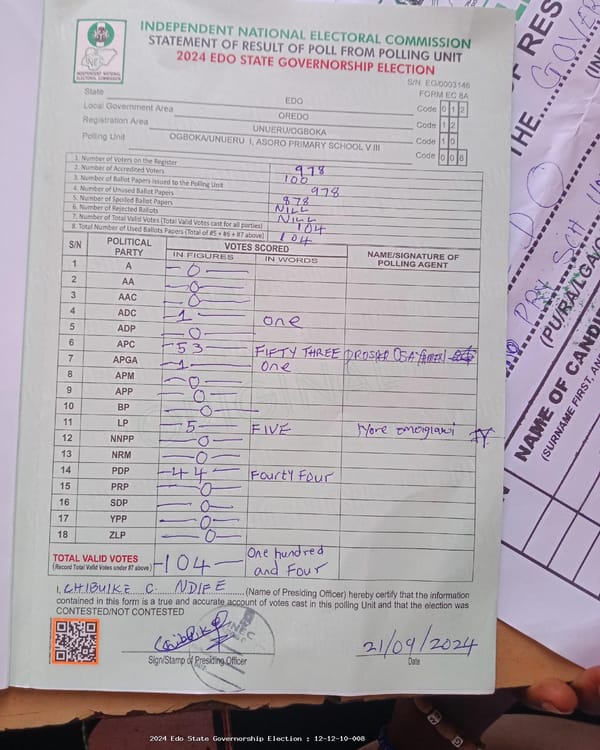 INDEPENDENT NATIONAL ELECTORAL COMMISSION
STATEMENT OF RESULT OF POLL FROM POLLING UNIT
2024 EDO STATE GOVERNORSHIP ELECTION
INDEPENDENT NATIONAL ELECTORAL COMMISSION
S/N. EG/0003146
FORM EC 8A
State EDO Code 0 1 2
Local Government Area OREDO Code 1 2
Registration Area UNUERU/OGBOKA Code 1 0
Polling Unit OGBOKA/UNUERU I, ASORO PRIMARY SCHOOL V III Code 0 0 8
1. Number of Voters on the Register 978
2. Number of Accredited Voters 100
3. Number of Ballot Papers Issued to the Polling Unit 978
4. Number of Unused Ballot Papers 878
5. Number of Spoiled Ballot Papers NILL
6. Number of Rejected Ballots NILL
7. Number of Total Valid Votes (Total Valid Votes cast for all parties) 104
8. Total Number of Used Ballots Papers (Total of #5 + #6 + #7 above) 104
S/N POLITICAL PARTY VOTES SCORED NAME/SIGNATURE OF POLLING AGENT
IN FIGURES IN WORDS
1 A -0-
2 AA -0-
3 AAC -0-
4 ADC -1- one
5 ADP -0-
6 APC -53 FIFTY THREE
7 APGA -1- one
8 APM -0-
9 APP -0-
10 BP -0-
11 LP -5- FIVE
12 NNPP -0-
13 NRM -0-
14 PDP -44- Fourty Four
15 PRP -0-
16 SDP -0-
17 YPP -0-
18 ZLP -0-
TOTAL VALID VOTES -104- One hundred
(Record Total Valid Votes under #7 above) and Four
I, CHIBUIKE C. NDIFE (Name of Presiding Officer) hereby certify that the information
contained in this form is a true and accurate account of votes cast in this polling Unit and that the election was
CONTESTED/NOT CONTESTED
21/09/2024
Sign/Stamp of Presiding Officer Date
NAME OF CANDI
(SURNAME FIRST, AN
(PU/RA/LGA/C
2024 Edo State Governorship Election : 12-12-10-008